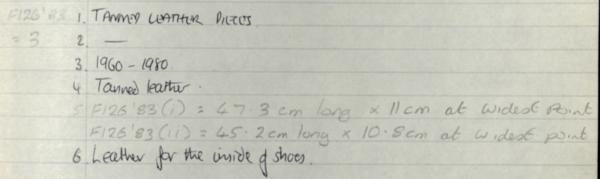 F126'83 1. TANNED LEATHER PIECES.
= 3 2. —
3. 1960 - 1980
4 Tanned leather.
5 F126'83(i) = 47.3 cm long x 11cm at widest point
F126'83(ii) = 45.2cm long x 10.8cm at widest point
6. Leather for the inside of shoes.